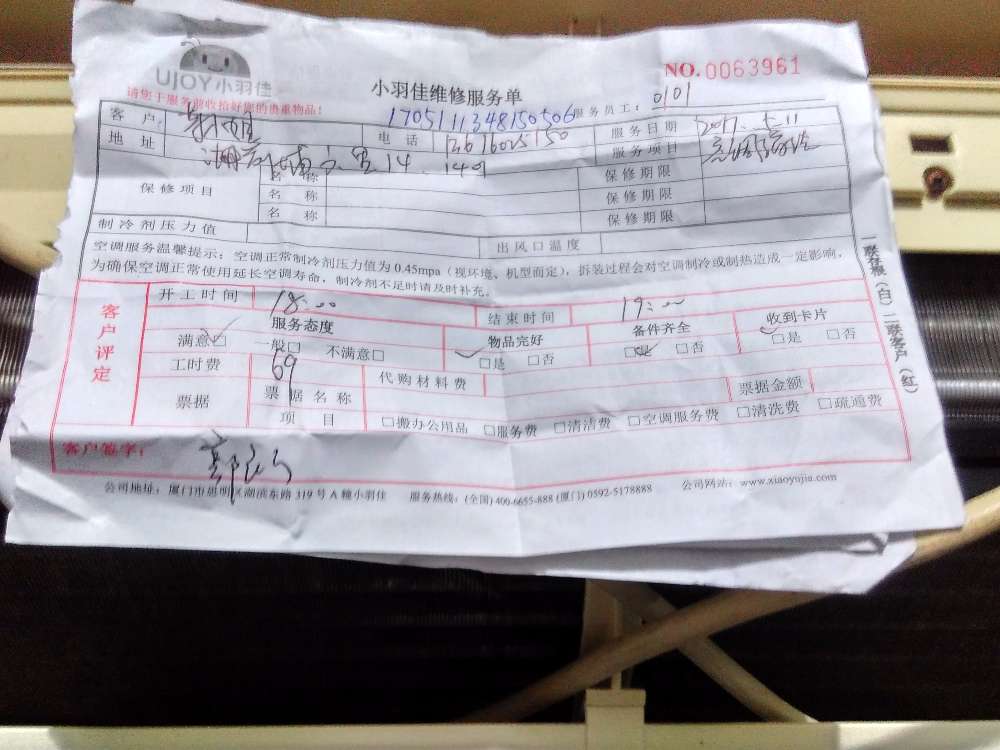 UJOY小羽佳
小羽佳维修服务单
NO.0063961
请您于服务前收拾好您的贵重物品!
1705111348150506
服务员工:0101
客户:
电话
服务日期 2017.5.11
地址
14
服务项目
保修项目 名称 保修期限
名称 保修期限
名称 保修期限
制冷剂压力值 出风口温度
空调服务温馨提示:空调正常制冷剂压力值为0.45mpa(视环境、机型而定),拆装过程会对空调制冷或制热造成一定影响,
为确保空调正常使用延长空调寿命,制冷剂不足时请及时补充。
客户评定
开工时间 18:00 结束时间 19:00
服务态度 物品完好 备件齐全 收到卡片
满意□ 一般□ 不满意□ □是 □否 □是 □否 □是 □否
工时费 69 代购材料费
票据 票据名称 票据金额
项目 □搬办公用品 □服务费 □清洁费 □空调服务费 □清洗费 □疏通费
客户签字:
公司地址:厦门市思明区湖滨东路319号A幢小羽佳 服务热线:(全国)400-6655-888(厦门)0592-5178888 公司网站:www.xiaoyujia.com
一联存根(白)二联客户(红)